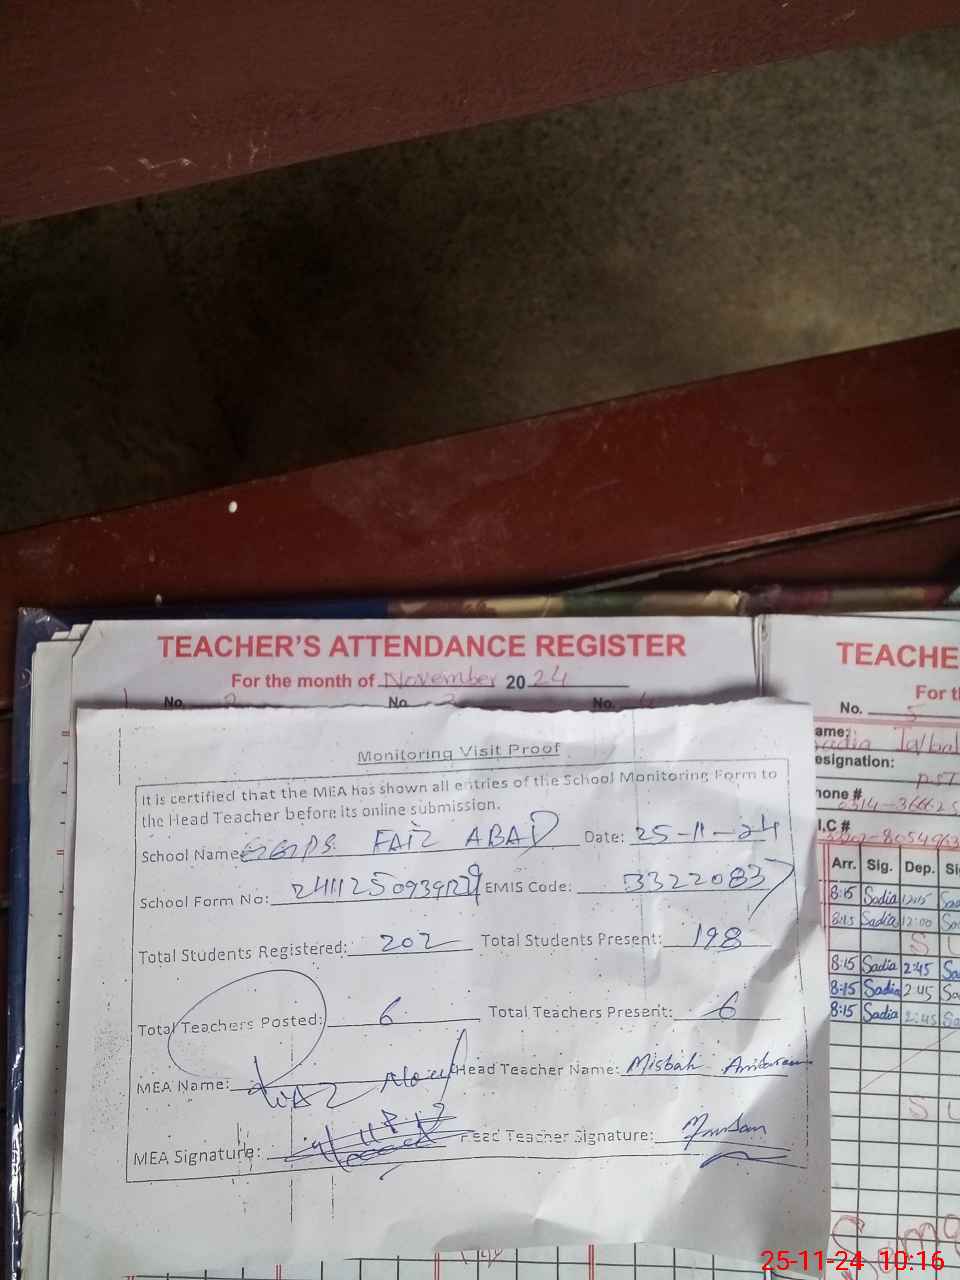 TEACHER'S ATTENDANCE REGISTER
For the month of November 2024
No. 2 No. 3 No.
Monitoring Visit Proof
It is certified that the MEA has shown all entries of the School Monitoring Form to
the Head Teacher before its online submission.
School Name: GGPS FAIZ ABAD Date: 25-11-24
School Form No: EMIS Code: 33220837
Total Students Registered: 202 Total Students Present: 198
Total Teachers Posted: 6 Total Teachers Present: 6
MEA Name: Head Teacher Name: Misbah
MEA Signature: Head Teacher Signature:
TEACHE
For t
No. 5
ame:
esignation:
PST
hone #
I.C #
Arr. Sig. Dep. Si
8:15 Sadia 12:15 Sad
8:15 Sadia 12:00 Sa
S U
8:15 Sadia 2:45 Sa
8:15 Sadia 2:45 Sa
8:15 Sadia 2:45 Sa
S U
25-11-24 10:16